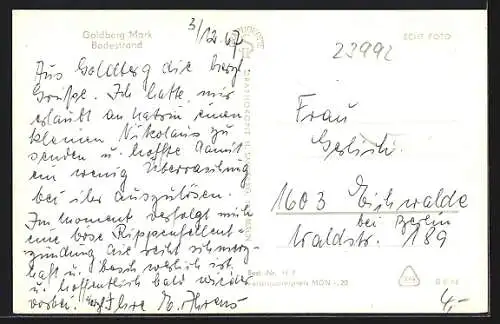 Goldberg Mark
Badestrand
3/12.67
ECHT FOTO
23992
Aus Goldberg die herzl.
Grüße. Ich hatte mir
erlaubt an Katrin einen
kleinen Nikolaus zu
senden u. hoffte damit
ein wenig Überraschung
bei ihr auszulösen.
Im Moment verfolgt mich
eine böse Rippenfellent-
zündung die recht schmerz-
haft u. beschwerlich ist
u. hoffentlich bald wieder
vorbei. Ihre E. Ahrens
Frau
1603 Eichwalde
bei Berlin
Waldstr. 189
Best.-Nr. H 1
MDN -,20
4,-